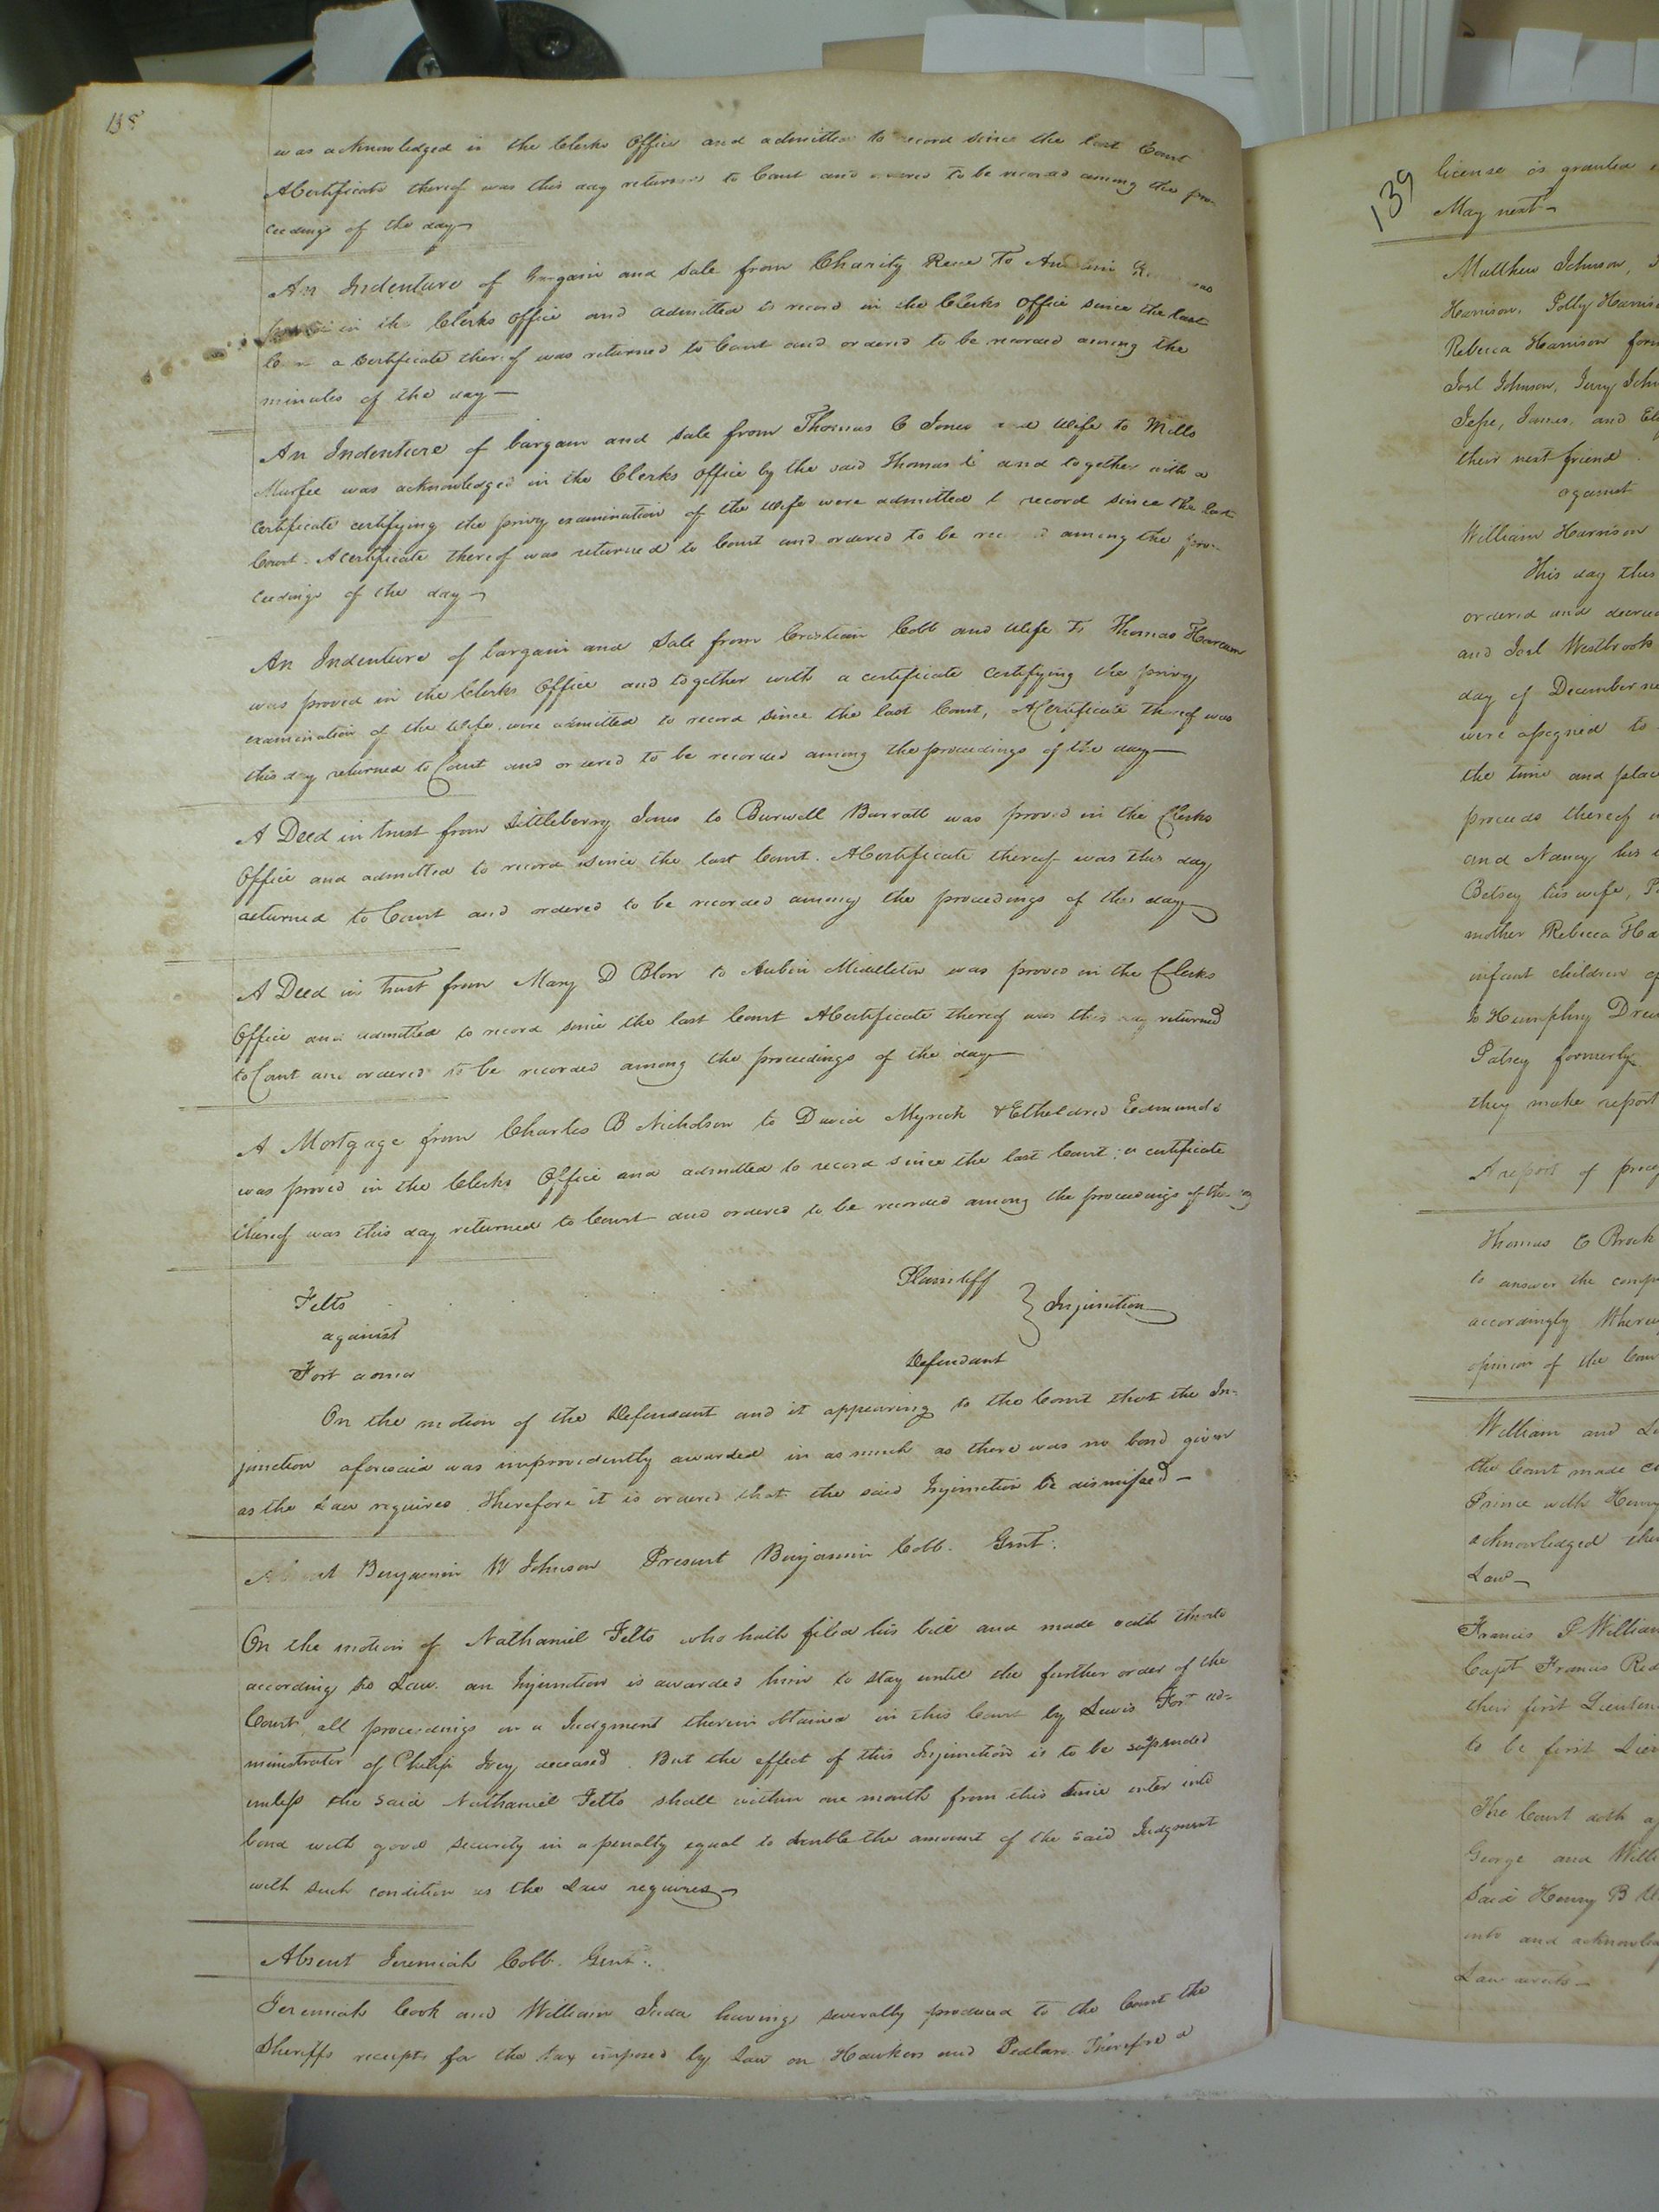 138
was acknowledged in the Clerks Office and admitted to record since the last Court
A Certificate thereof was this day returned to Court and ordered to be recorded among the pro-
ceedings of the day
An Indenture of Bargain and Sale from Charity Rese To
in the Clerks office and admitted to record in the Clerks Office since the last
a Certificate thereof was returned to Court and ordered to be recorded among the
minutes of the day
An Indenture of bargain and sale from Thomas C Jones and Wife to Mills
Murfee was acknowledged in the Clerks office by the said Thomas C and together with a
certificate certifying the privy examination of the Wife were admitted to record since the last
Court. A certificate thereof was returned to Court and ordered to be recorded among the pro-
ceedings of the day
An Indenture of bargain and Sale from Cristian Cobb and Wife To Thomas Harcum
was proved in the Clerks Office and together with a certificate certifying the privy
examination of the Wife were admitted to record since the last Court, A Certificate thereof was
this day returned to Court and ordered to be recorded among the proceedings of the day
A Deed in trust from Littleberry Jones to Burwell Barrott was proved in the Clerks
Office and admitted to record since the last Court. A Certificate thereof was this day
returned to Court and ordered to be recorded among the proceedings of this day
A Deed in trust from Mary D Blow to Aubin Middleton was proved in the Clerks
Office and admitted to record since the last Court A Certificate thereof was this day returned
to Court and ordered to be recorded among the proceedings of the day
A Mortgage from Charles B Nicholson to David Myrick & Etheldred Edmunds
was proved in the Clerks Office and admitted to record since the last Court; a certificate
thereof was this day returned to Court and ordered to be recorded among the proceedings of the day
Felts Plaintiff
against } Injunction
Fort admr Defendant
On the motion of the Defendant and it appearing to the Court that the In-
junction aforesaid was improvidently awarded in as much as there was no bond given
as the Law requires. Therefore it is ordered that the said Injunction be dismissed
Absent Benjamin W Johnson Present Benjamin Cobb. Gent.
On the motion of Nathaniel Felts who hath filed his bill and made oath thereto
according to Law. an Injunction is awarded him to stay until the further order of the
Court all proceedings on a Judgment therein obtained in this Court by Lewis Fort ad-
ministrator of Philip Ivey deceased. But the effect of this Injunction is to be suspended
unless the said Nathaniel Felts shall within one month from this time enter into
bond with good security in a penalty equal to double the amount of the said Judgment
with such condition as the Law requires
Absent Jeremiah Cobb. Gent.
Jeremiah Cook and William Juda having severally produced to the Court the
Sheriffs receipts for the tax imposed by Law on Hawkers and Pedlars Therefore a
139
license is granted
May next
Matthew Johnson,
Harrison, Polly
Rebecca Harrison
Joel Johnson, Jerry
Jesse, James, and
their next friend
against
William Harrison
This day this
ordered and
and Joel Westbrook
day of December
were assigned to
the time and
proceeds thereof
and Nancy his
Betsey his wife,
mother Rebecca
infant children of
to Humphry
Patsey formerly
they make report
A report of
Thomas C Brock
to answer the
accordingly
opinion of the
William and
the Court made
Prince with Henry
acknowledged
Law
Francis
Capt Francis
their first
to be first
The Court doth
George and
said Henry B
into and
Law directs